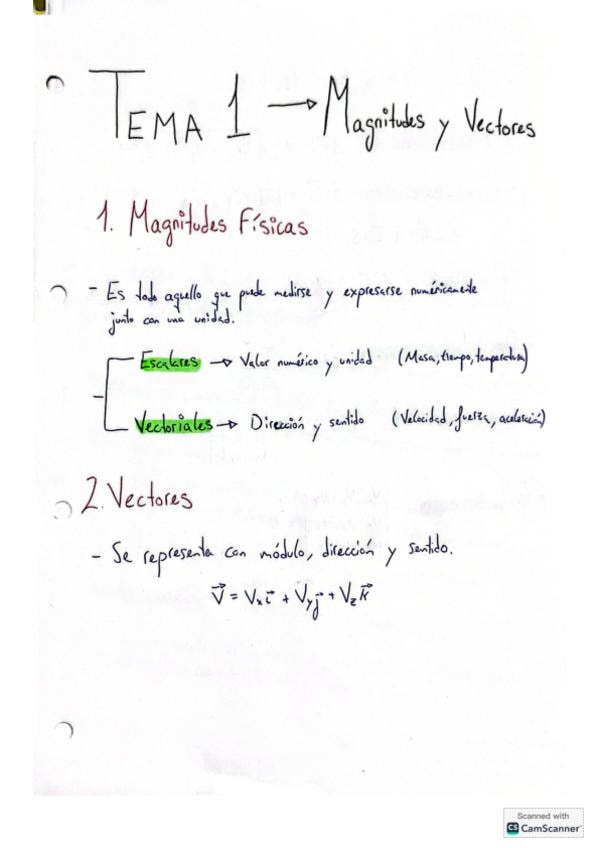 TEMA 1 → Magnitudes y Vectores
1. Magnitudes Físicas
- Es todo aquello que puede medirse y expresarse numéricamente
junto con una unidad.
Escalares → Valor numérico y unidad (Masa, tiempo, temperatura)
Vectoriales → Dirección y sentido (Velocidad, fuerza, aceleración)
2. Vectores
- Se representa con módulo, dirección y sentido.
V⃗ = Vₓi⃗ + Vᵧj⃗ + V_z k⃗
Scanned with
CS CamScanner